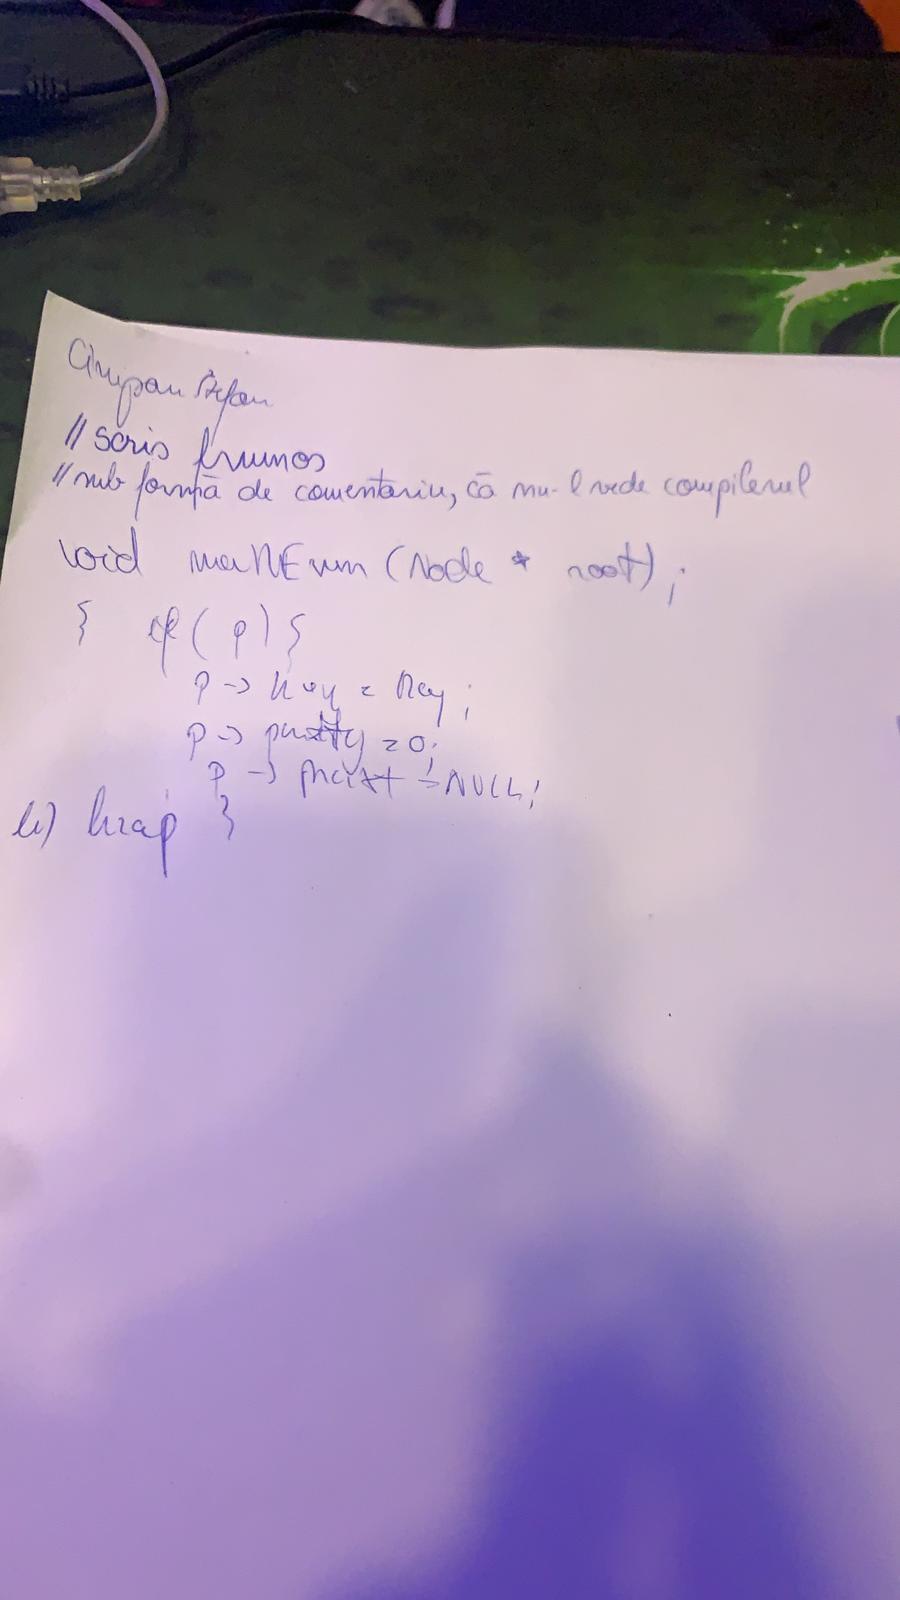 Ștefan
// scris frumos
// sub formă de comentariu, că nu-l vede compilerul
void (Node * root);
{ if (p) {
p -> key = key;
p -> = 0;
p -> = NULL;
b) heap }